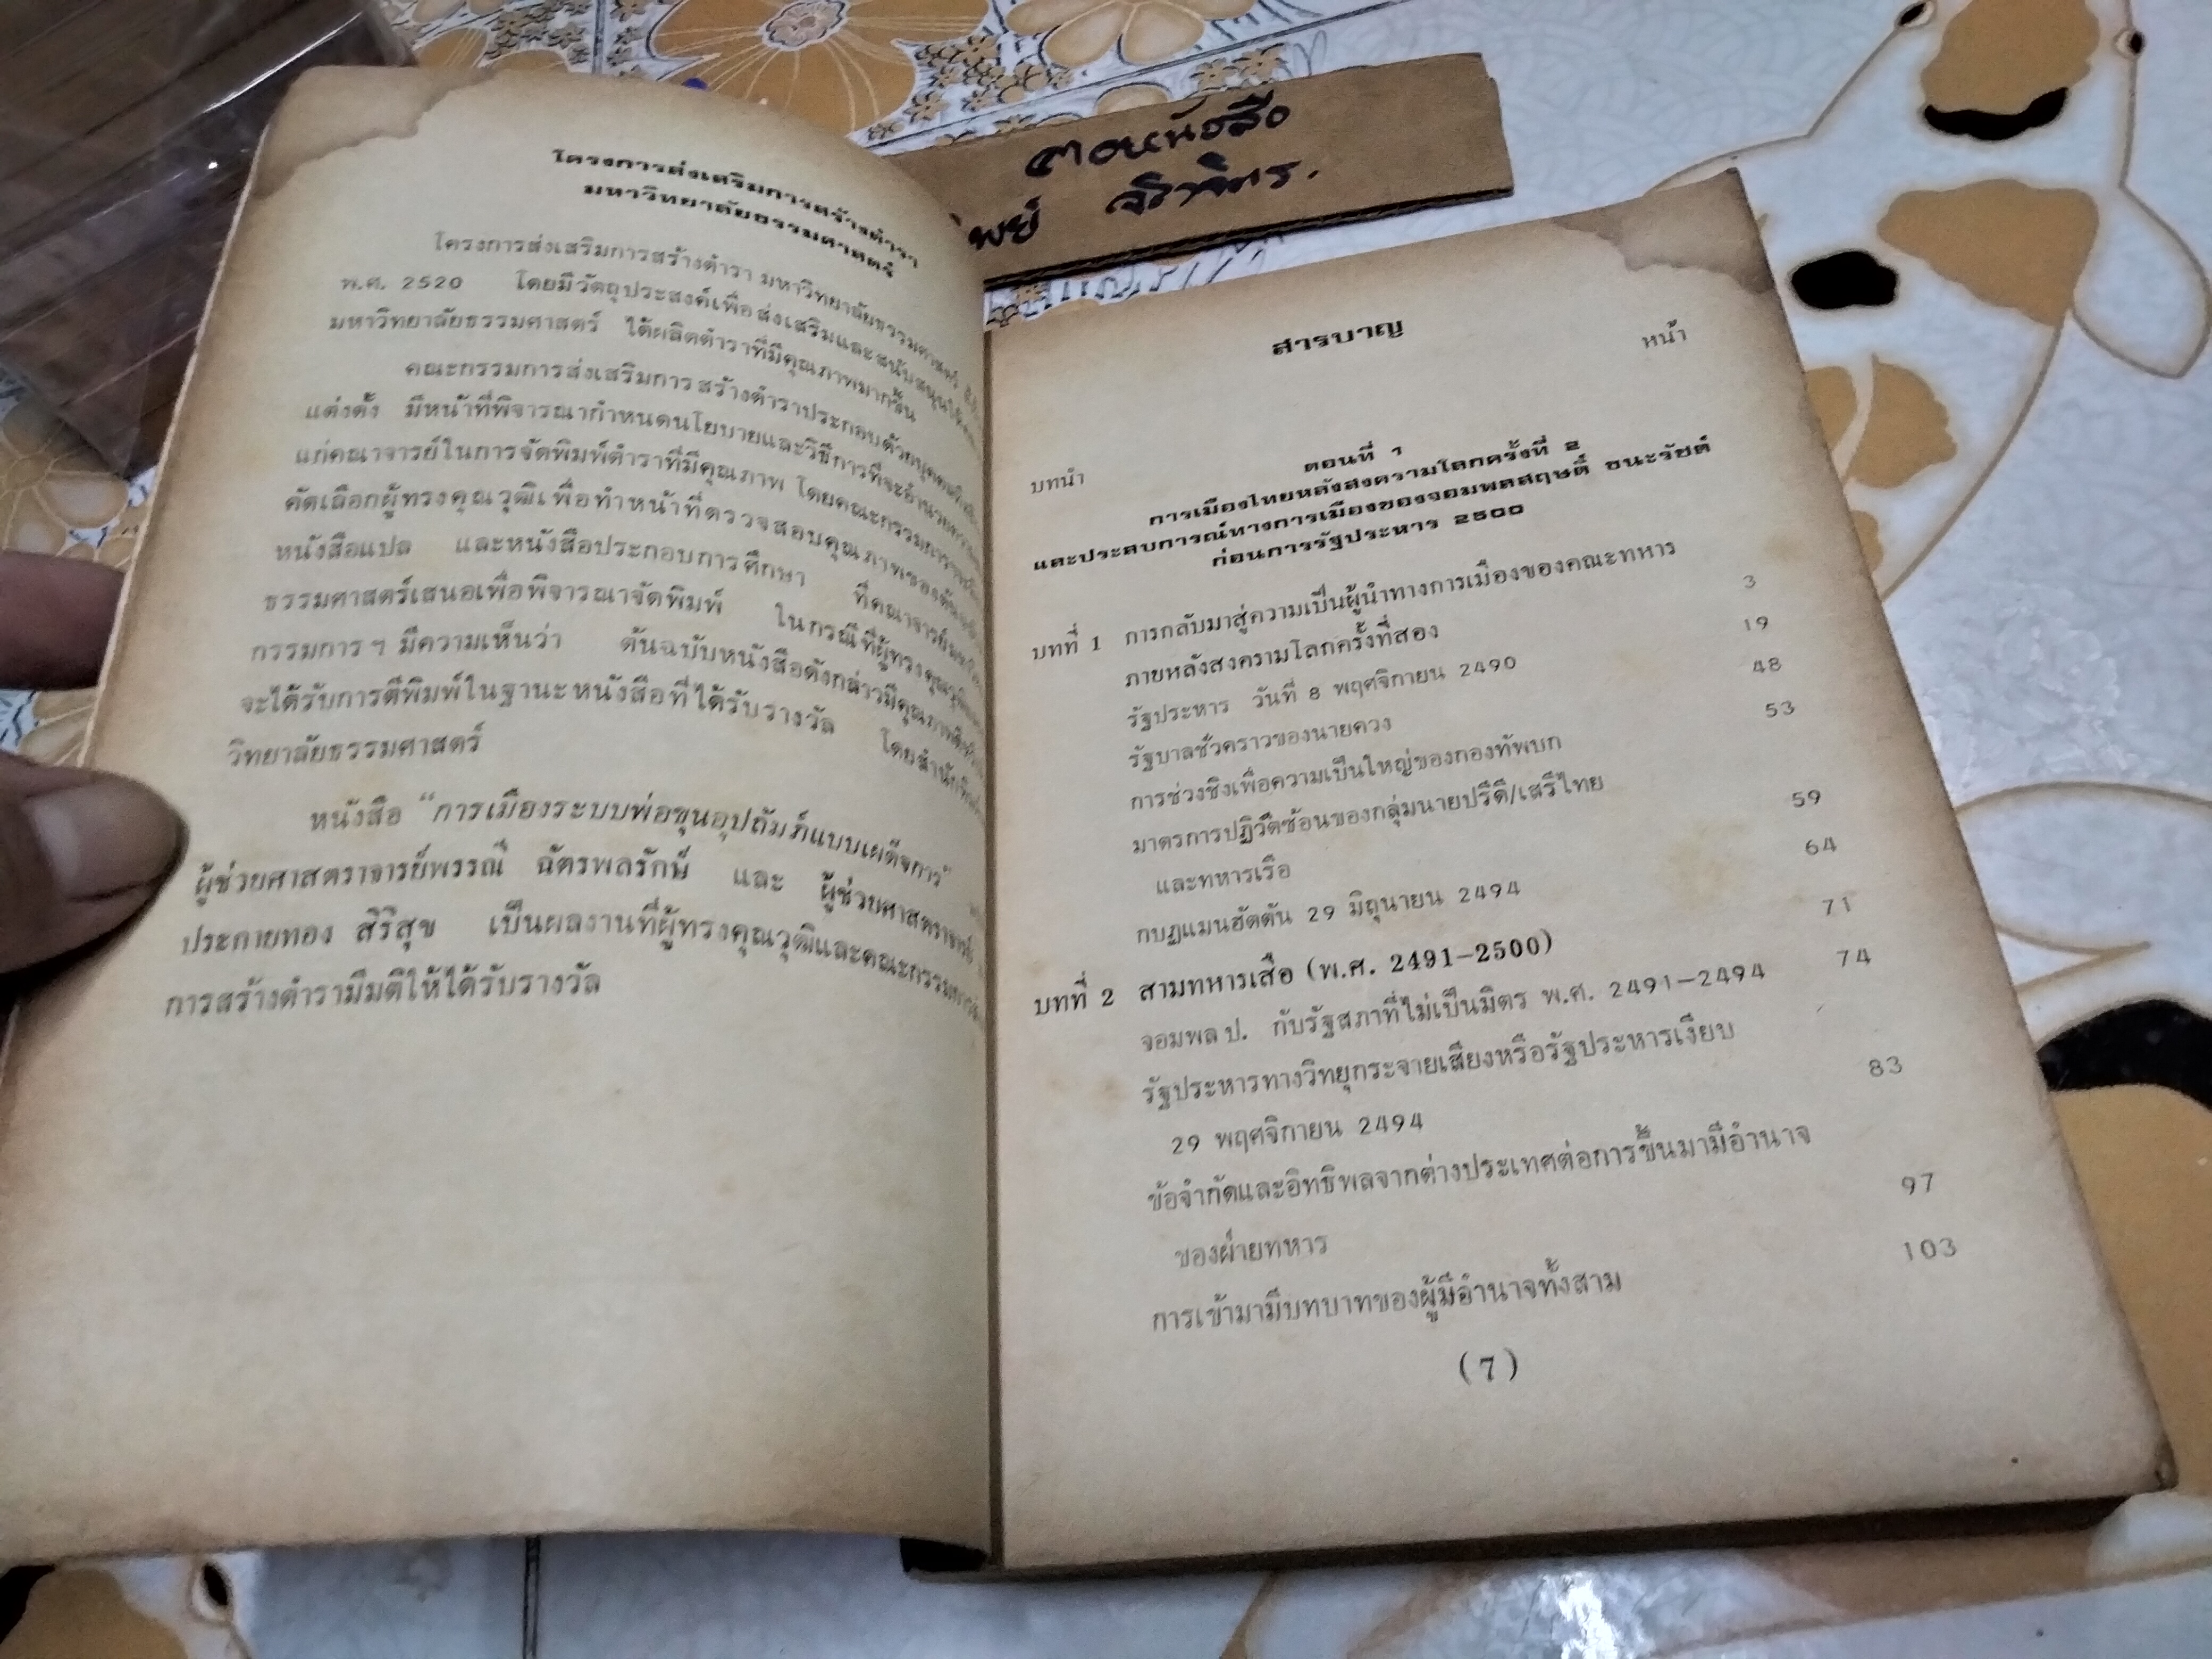 โครงการส่งเสริมการสร้างตำรา
มหาวิทยาลัยธรรมศาสตร์
โครงการส่งเสริมการสร้างตำรา มหาวิทยาลัยธรรมศาสตร์
พ.ศ. 2520 โดยมีวัตถุประสงค์เพื่อส่งเสริมและสนับสนุนให้
มหาวิทยาลัยธรรมศาสตร์ ได้ผลิตตำราที่มีคุณภาพมากขึ้น
คณะกรรมการส่งเสริมการสร้างตำราประกอบด้วยบุคคล
แต่งตั้ง มีหน้าที่พิจารณากำหนดนโยบายและวิธีการที่จะอำนวยความ
แก่คณาจารย์ในการจัดพิมพ์ตำราที่มีคุณภาพ โดยคณะกรรมการ
คัดเลือกผู้ทรงคุณวุฒิเพื่อทำหน้าที่ตรวจสอบคุณภาพของต้นฉบับ
หนังสือแปล และหนังสือประกอบการศึกษา ที่คณาจารย์
ธรรมศาสตร์เสนอเพื่อพิจารณาจัดพิมพ์ ในกรณีที่ผู้ทรงคุณวุฒิ
กรรมการ ฯ มีความเห็นว่า ต้นฉบับหนังสือดังกล่าวมีคุณภาพ
จะได้รับการตีพิมพ์ในฐานะหนังสือที่ได้รับรางวัล โดยสำนักพิมพ์
วิทยาลัยธรรมศาสตร์
หนังสือ “การเมืองระบบพ่อขุนอุปถัมภ์แบบเผด็จการ”
ผู้ช่วยศาสตราจารย์พรรณี ฉัตรพลรักษ์ และ ผู้ช่วยศาสตราจารย์
ประกายทอง สิริสุข เป็นผลงานที่ผู้ทรงคุณวุฒิและคณะกรรมการ
การสร้างตำรามีมติให้ได้รับรางวัล
สารบาญ
หน้า
บทนำ
ตอนที่ 1
การเมืองไทยหลังสงครามโลกครั้งที่ 2
และประสบการณ์ทางการเมืองของจอมพลสฤษดิ์ ธนะรัชต์
ก่อนการรัฐประหาร 2500
บทที่ 1 การกลับมาสู่ความเป็นผู้นำทางการเมืองของคณะทหาร
ภายหลังสงครามโลกครั้งที่สอง 3
รัฐประหาร วันที่ 8 พฤศจิกายน 2490 19
รัฐบาลชั่วคราวของนายควง 48
การช่วงชิงเพื่อความเป็นใหญ่ของกองทัพบก 53
มาตรการปฏิวัติซ้อนของกลุ่มนายปรีดี/เสรีไทย
และทหารเรือ 59
กบฏแมนฮัตตัน 29 มิถุนายน 2494 64
บทที่ 2 สามทหารเสือ (พ.ศ. 2491–2500) 71
จอมพล ป. กับรัฐสภาที่ไม่เป็นมิตร พ.ศ. 2491–2494 74
รัฐประหารทางวิทยุกระจายเสียงหรือรัฐประหารเงียบ
29 พฤศจิกายน 2494 83
ข้อจำกัดและอิทธิพลจากต่างประเทศต่อการขึ้นมามีอำนาจ
ของฝ่ายทหาร 97
การเข้ามามีบทบาทของผู้มีอำนาจทั้งสาม 103
(7)